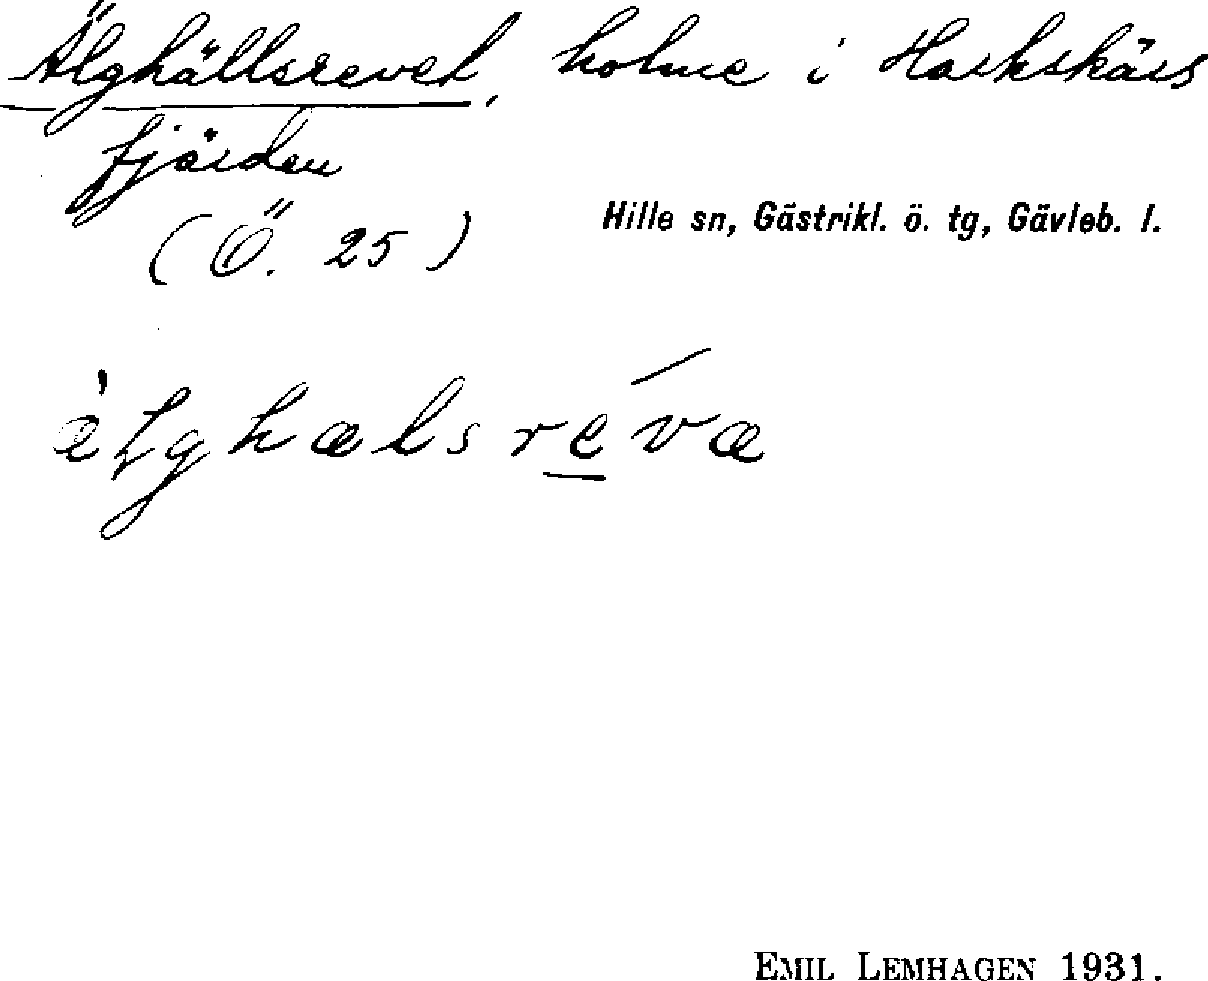 Älghällsrevet, holme i Harkskärs
fjärden
(Ö. 25)
Hille sn, Gästrikl. ö. tg, Gävleb. l.
èlghælsréva
EMIL LEMHAGEN 1931.